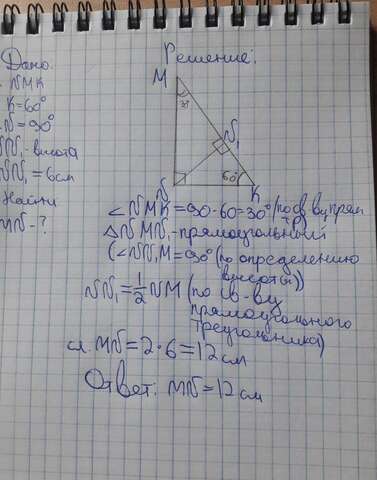 Дано:
NMK
K=60°
N=90°
NN₁-высота
NN₁=6см
Найти
MN-?
Решение:
M
N₁
N
60°
K
∠NMK=90-60=30°(по св-ву прям
тр)
△NMN₁-прямоугольный
(∠NN₁M=90°(по определению
высоты))
NN₁=½NM (по св-ву
прямоугольного
треугольника)
сл. MN=2·6=12см
Ответ: MN=12см